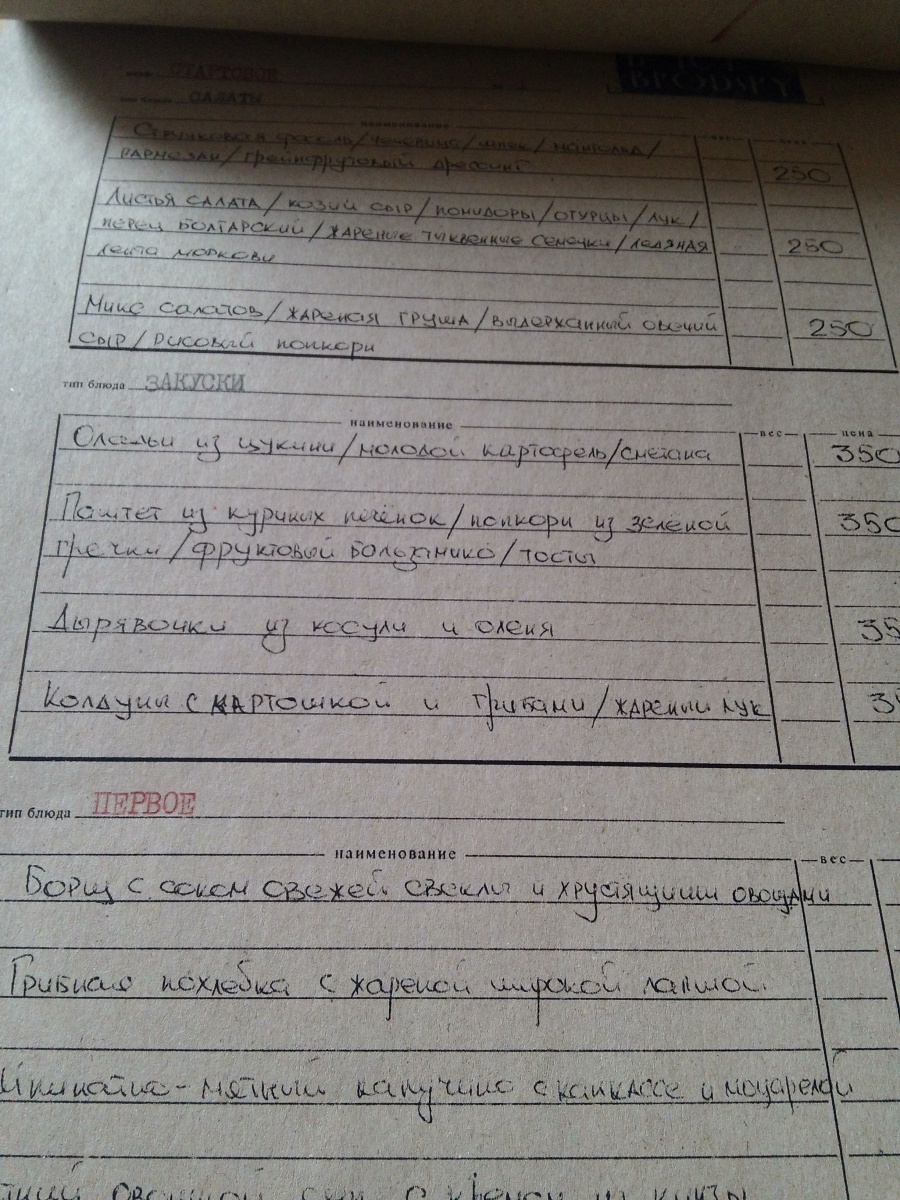 СТАРТОВОЕ
BRODSKY
САЛАТЫ
наименование
Стручковая фасоль/чечевица/шпек/мангольд/
пармезан/грейпфрутовый дрессинг 250
Листья салата/козий сыр/помидоры/огурцы/лук/
перец болгарский/жареные тыквенные семечки/ледяная 250
лента моркови
Микс салатов/жареная груша/выдержанный овечий 250
сыр/рисовый попкорн
тип блюда ЗАКУСКИ
наименование вес цена
Оладьи из цукини/молодой картофель/сметана 350
Паштет из куриных печёнок/попкорн из зеленой 350
гречки/фруктовый бальзамико/тосты
Дырявчики из косули и оленя 35
Колдуны с картошкой и грибами/жареный лук 3
тип блюда ПЕРВОЕ
наименование вес
Борщ с соком свежей свеклы и хрустящими овощами
Грибная похлебка с жареной широкой лапшой
мятный капучино с и моцареллой
овощной суп с кремом из кинзы